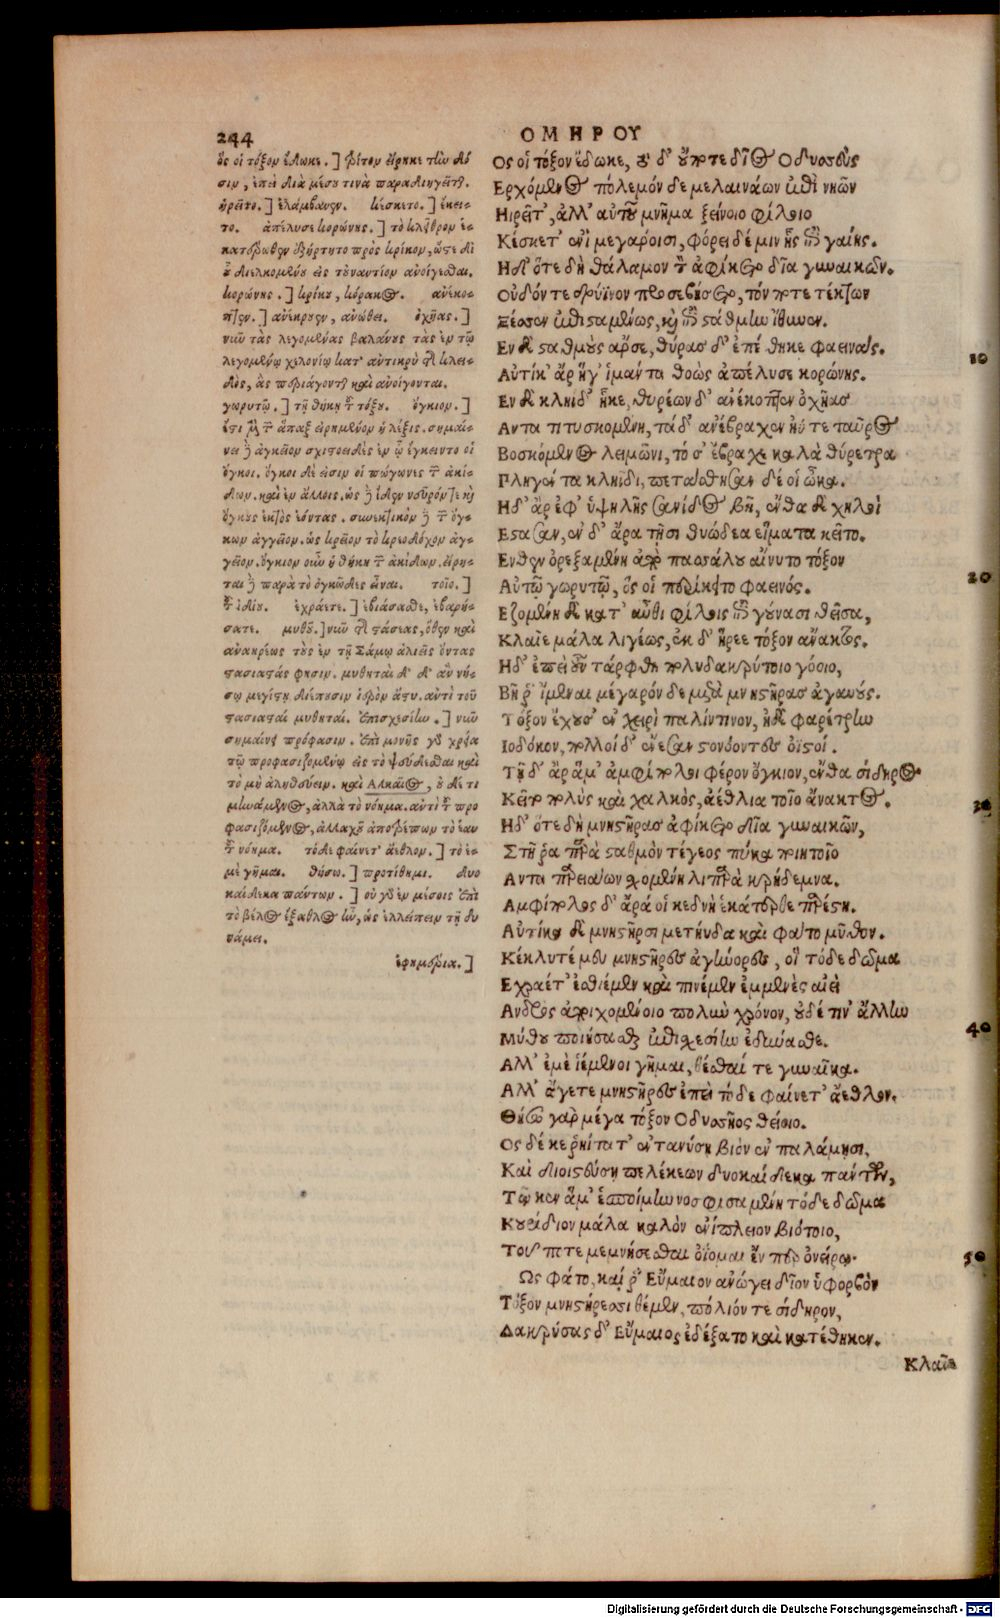 244
ΟΜΗΡΟΥ
ὅς οἱ τόξον ἔδωκε.] ῥῖτον εἴρηκε τὴν δό
σιν, ἐπεὶ διὰ μέσου τινὰ παραδιηγεῖται.
ᾑρεῖτο.] ἐλάμβανεν. κέσκετο.] ἔκει-
το. ἀπέλυσε κορώνης.] τὸ κλεῖθρον ἑ-
κατέρωθεν ἐξήρτητο πρὸς κρίκον, ὥςε δι
οὗ διελκομένου εἰς τοὐναντίον ἀνοίγεσθαι.
κορώνης.] κρίκου, κόρακος. ἀνέκο-
πτεν.] ἀνέκρουεν, ἀνώθει. ὀχῆας.]
νῦν τὰς λεγομένας βαλάνους τὰς ἐν τῷ
λεγομένῳ χελονίῳ κατ' ἀντικρὺ τῆς κλει-
δὸς, ἃς περιάγοντες καὶ ἀνοίγονται.
γωρυτῷ.] τῇ θήκῃ τοῦ τόξου. ὄγκιον.]
ἔςι μὲν τῶν ἅπαξ εἰρημένων ἡ λέξις. σημαί-
νει δὲ ἀγγεῖον ἐν ᾧ ἔγκειντο οἱ
ὄγκοι. ὄγκοι δέ εἰσιν οἱ πώγωνες τῶν ἀκί-
δων. καὶ ἐν ἄλλοις. ὡς δὲ ἴδεν νεῦρόν τε καὶ
ὄγκους ἐκτὸς ἐόντας.
κων ἀγγεῖον. ὡς κρεῖον τὸ κρεοδόχον ἀγ-
γεῖον. ὄγκιον οὖν ἡ θήκη τῶν ἀκίδων. εἴρη-
ται δὲ παρὰ τὸ ὀγκῶδες εἶναι. τοῖο.]
τοῦ ἰδίου. ἐχράετε.] ἐβιάσασθε, ἐβαρή-
σατε. μύθου.] νῦν τῆς στάσεως, ὅθεν καὶ
ἀνακρέων τοὺς ἐν τῇ Σάμῳ ἁλιεῖς ὄντας
ςασιαςάς φησιν. μυθηταὶ δ' δ' ἀν νή-
σῳ μεγίςῃ διέπουσιν ἱερὸν ἄςυ. αὐτὶ τοῦ
ςασιαςαὶ μυθηταί. ἐπισχεσίην.] νῦν
σημαίνει πρόφασιν. ἐπὶ μονῆς γὰρ χρῆσα
τῷ προφασιζομένῳ εἰς τὸ ψεύδεσθαι καὶ
τὸ μὴ ἀληθεύειν. καὶ Αλκαῖος, οὐδέ τι
μυνάμενος, ἀλλὰ τὸ νόημα. αὐτὶ τοῦ προ
φασιζόμενος, ἀλλαχοῦ ἀποτρέπων τὸ ἑαυ
τοῦ νόημα. τόδε φαίνετ' ἄεθλον.] τὸ ἐ-
μὲ γῆμαι. θήσω.] προτίθημι. δυο
καίδεκα πάντων.] οὐ γὰρ ἐν μέσοις ἐπὶ
τὸ βέλος ἐξαθλος ὢν, ὡς ἐλλείπειν τῇ δυ
νάμει.
ἐφημέρια.]
Ος οἱ τόξον ἔδωκε, καὶ δ' οὔποτε δῖος Οδυσσεὺς
Ερχόμενος πόλεμόν δε μελαινάων ἐπὶ νηῶν
Ηιρεῖτ', ἀλλ' αὐτοῦ μνῆμα ξείνοιο φίλοιο
Κέσκετ' ἐνὶ μεγάροισι, φόρει δέ μιν ἧς ἐπὶ γαίης.
Ηδ' ὅτε δὴ θάλαμον τὸν ἀφίκετο δῖα γυναικῶν.
Οὐδόν τε δρύϊνον προσεβήσετο, τόν ποτε τέκτων
Ξέσσεν ἐπιςαμένως, καὶ ἐπὶ ςάθμην ἴθυνεν.
Εν δὲ ςαθμοὺς ἄρσε, θύρας δ' ἐπέθηκε φαεινάς.
Αὐτίκ' ἄρ ἥγ' ἱμάντα θοῶς ἀπέλυσε κορώνης.
Εν δὲ κληῖδ' ἧκε, θυρέων δ' ἀνέκοπτεν ὀχῆας
Αντα τιτυσκομένη, τάδ' ἀνέβραχεν ἠΰτε ταῦρος
Βοσκόμενος λειμῶνι, τόσ' ἔβραχε καλὰ θύρετρα
Πληγέντα κληῖδι, πετάσθησαν δέ οἱ ὦκα.
Ηδ' ἄρ ἐφ' ὑψηλῆς σανίδος βῆ, ἔνθα δὲ χηλοὶ
Εςασαν, ἐν δ' ἄρα τῇσι θυώδεα εἵματα κεῖτο.
Ενθεν ὀρεξαμένη ἀπὸ πασσάλου αἴνυτο τόξον
Αὐτῷ γωρυτῷ, ὅς οἱ περίκειτο φαεινός.
Εζομένη δὲ κατ' αὖθι φίλοις ἐπὶ γούνασι θεῖσα,
Κλαῖε μάλα λιγέως, ἐκ δ' ᾕρεε τόξον ἄνακτος.
Ηδ' ἐπεὶ οὖν τάρφθη πολυδακρύτοιο γόοιο,
Βῆ ῥ' ἴμεναι μέγαρόν δε μετὰ μνηςῆρας ἀγαυούς.
Τόξον ἔχουσ' ἐν χειρὶ παλίντινον, ἠδὲ φαρέτρην
Ιοδόκον, πολλοὶ δ' ἔνεσαν ςονόεντες ὀϊςοί.
Τῇ δ' ἄρ ἅμ' ἀμφίπολοι φέρον ὄγκιον, ἔνθα σίδηρος
Κεῖτο πολὺς καὶ χαλκὸς, ἀέθλια τοῖο ἄνακτος.
Ηδ' ὅτε δὴ μνηςῆρας ἀφίκετο δῖα γυναικῶν,
Στῆ ῥα παρὰ ςαθμὸν τέγεος πύκα ποιητοῖο
Αντα παρειάων σχομένη λιπαρὰ κρήδεμνα.
Αμφίπολος δ' ἄρά οἱ κεδνὴ ἑκάτερθε παρέςη.
Αὐτίκα δὲ μνηςῆρσι μετηύδα καὶ φάτο μῦθον.
Κέκλυτέ μευ μνηςῆρες ἀγήνορες, οἳ τόδε δῶμα
Εχράετ' ἐσθιέμεν καὶ πινέμεν ἐμμενὲς αἰεὶ
Ανδρὸς ἀποιχομένοιο πολὺν χρόνον, οὐδέ τιν' ἄλλην
Μύθου ποιήσασθαι ἐπισχεσίην ἐδύνασθε.
Αλλ' ἐμὲ ἱέμενοι γῆμαι, θέσθαί τε γυναῖκα.
Αλλ' ἄγετε μνηςῆρες ἐπεὶ τόδε φαίνετ' ἄεθλον.
Θήσω γὰρ μέγα τόξον Οδυσσῆος θείοιο.
Ος δέ κε ῥηίτατ' ἐντανύσῃ βιὸν ἐν παλάμῃσι,
Καὶ διοϊςεύσῃ πελέκεων δυοκαίδεκα πάντων,
Τῷ κεν ἅμ' ἑσποίμην νοσφισαμένη τόδε δῶμα
Κουρίδιον μάλα καλὸν ἐνίπλειον βιότοιο,
Τοῦ ποτε μεμνήσεσθαι ὀΐομαι ἔν περ ὀνείρῳ.
Ως φάτο, καί ῥ' Εὔμαιον ἀνώγει δῖον ὑφορβὸν
Τόξον μνηςήρεσσι θέμεν, πολιόν τε σίδηρον,
Δακρύσας δ' Εὔμαιος ἐδέξατο καὶ κατέθηκεν.
Κλαῖε
10
20
30
40
50
Digitalisierung gefördert durch die Deutsche Forschungsgemeinschaft - DFG